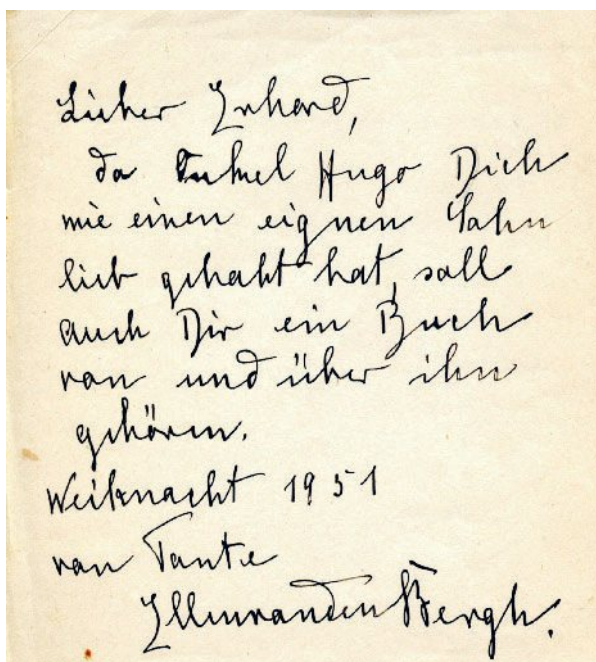 Lieber Erhard,
da Onkel Hugo Dich
wie einen eignen Sohn
lieb gehabt hat, soll
auch Dir ein Buch
von und über ihn
gehören.
Weihnacht 1951
von Tante
Ellen van den Bergh.